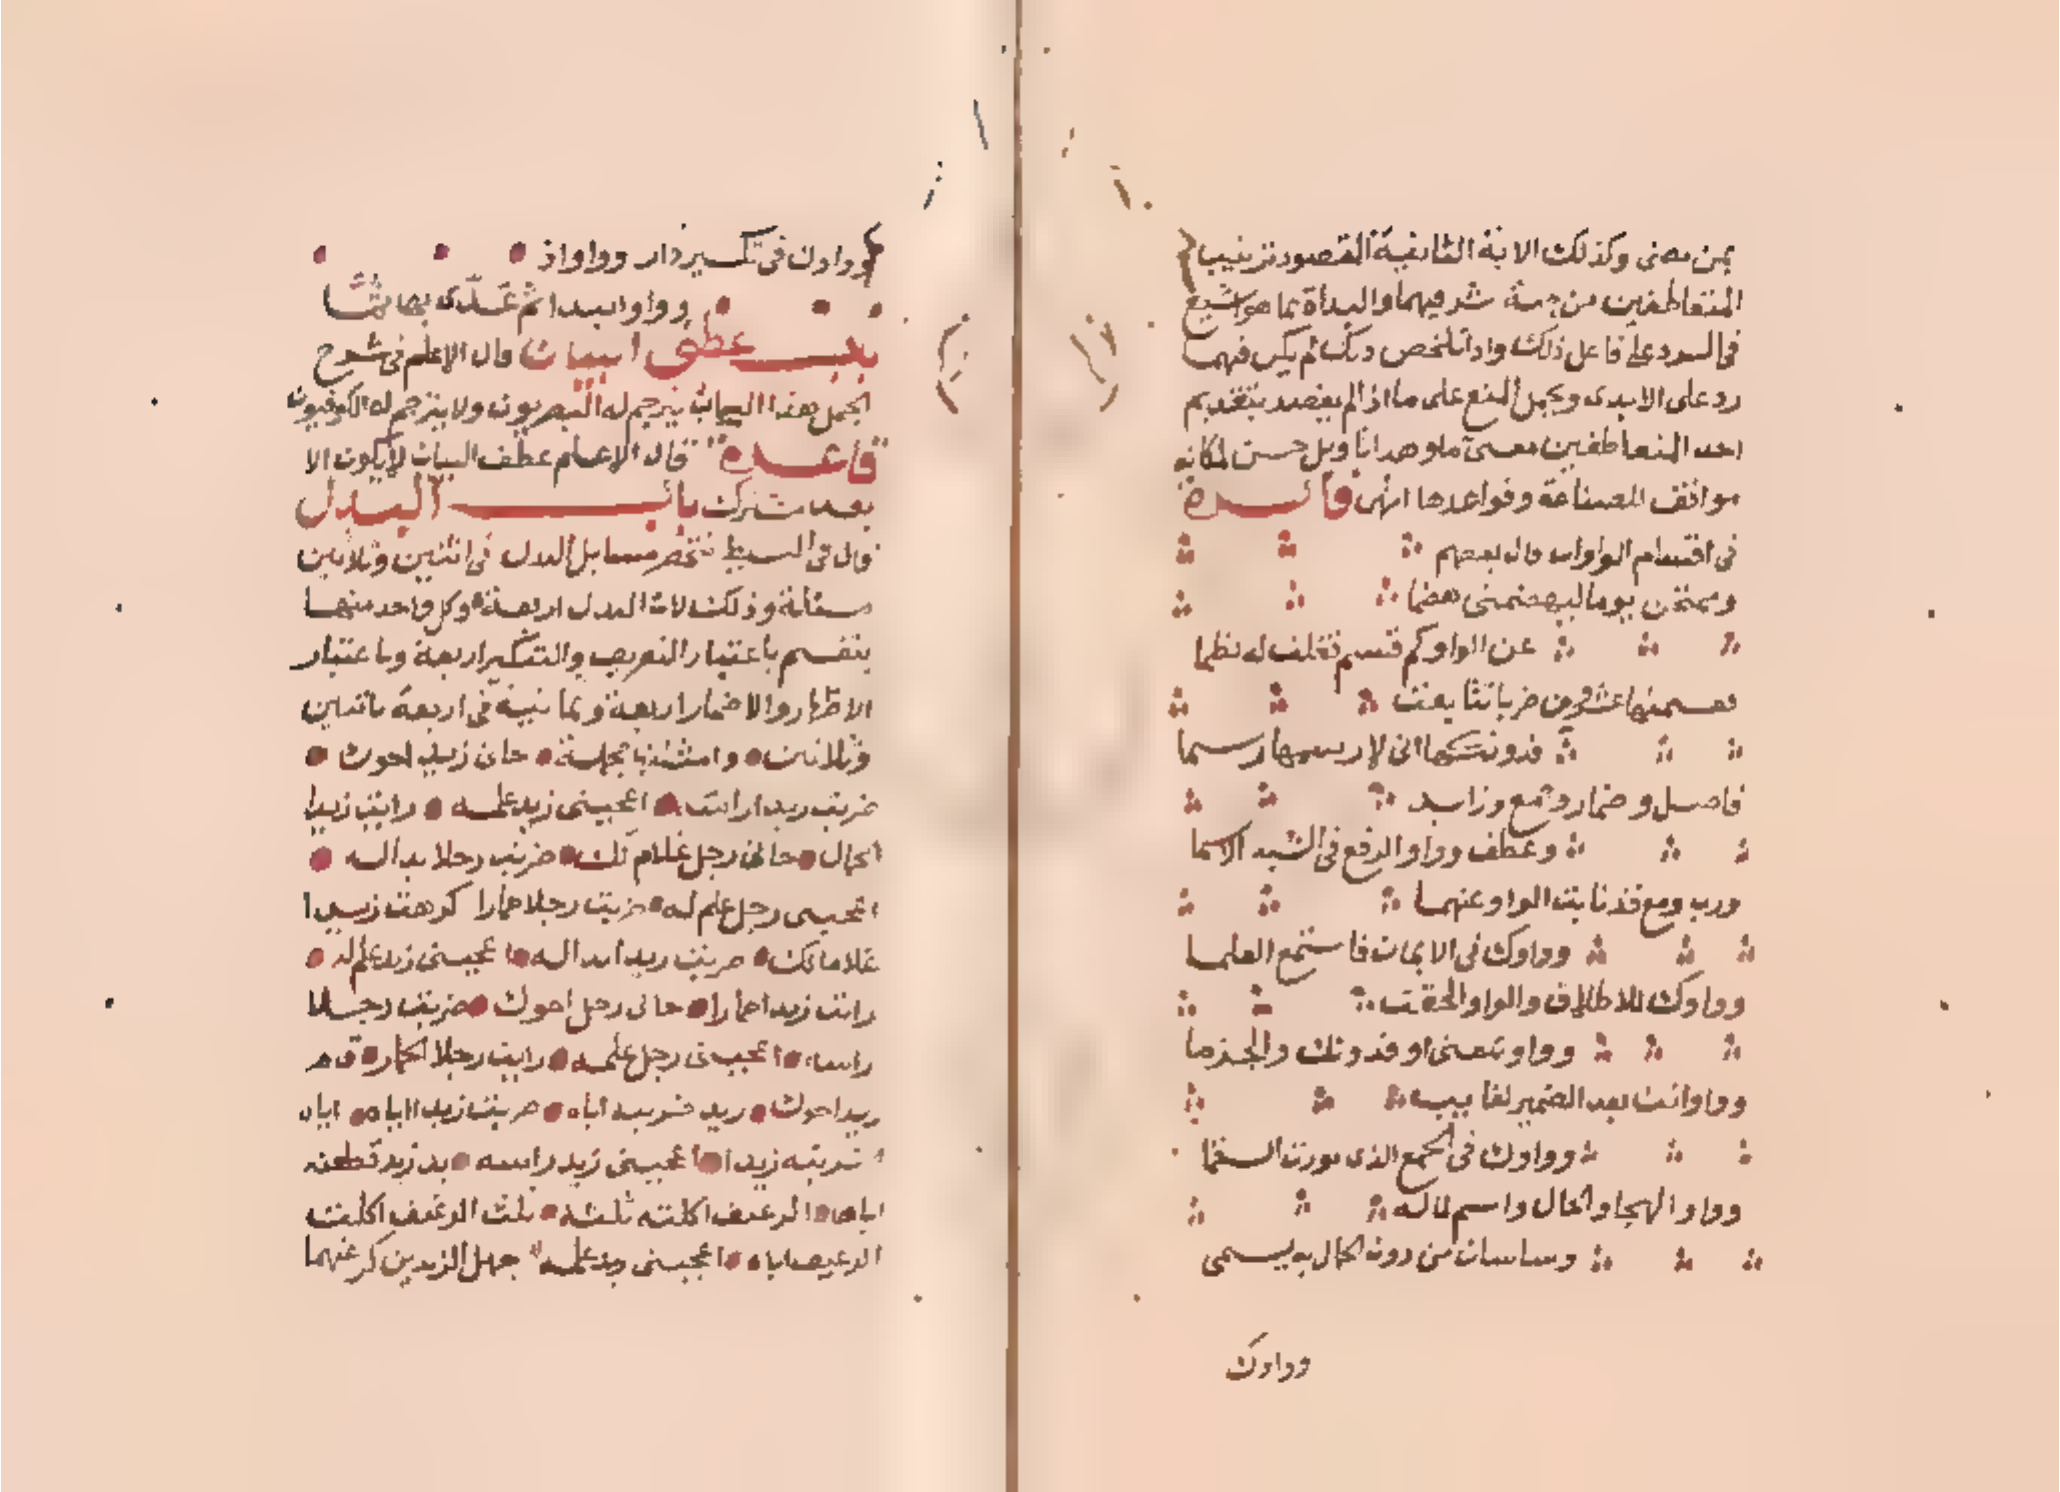 بمن مضى وكذلك الآية الثانية القصود ترتيب
المتعاطفين من جهة شرفهما والبداة بما هو
في الرد على فاعل ذلك واذا تلخص ذلك لم يكن فيهما
رد على الابدى ويحمل المنع على ما اذا لم يقصد بتقديم
احد المتعاطفين معنى ما وهذا حسن لمكانه
موافق للصناعة وقواعدها انتهى فائدة
في اقسام الواوات قال بعضهم
وممتحن يوما ليهضمني هضما
عن الواو كم قسم نظما
فقسمتها عشرون ضربا تتابعت
فدونكها اني لارسمها رسما
فاصل واضمار وجمع وزايد
وعطف وواو الرفع في الستة الاسما
ورب ومع قد نابت الواو عنهما
وواوك في الايمان فاستمع العلما
وواوك للاطلاق والواو الحقت
وواو بمعنى او فدونك والجزما
وواو اتت بعد الضمير لغايب
وواوك في الجمع الذي يورث السقما
وواو الهجا والحال واسم لما له
وساسان من دون الحال به يسمى
وواوك
وواوك في تكسير دار وواو اذ
وواو ابتدا ثم عدى بها
عطف البيان قال الاعلم في شرح
الجمل هذا الباب يترجم له البصريون ولا يترجم له الكوفيون
قاعدة قال الاعلم عطف البيان لا يكون الا
بعد مشترك باب البدل
قال في البسيط تنحصر مسايل البدل في اثنين وثلاثين
مسئلة وذلك لان البدل اربعة وكل واحد منها
ينقسم باعتبار التعريف والتنكير اربعة وباعتبار
الاظهار والاضمار اربعة وثمانية في اربعة باثنين
وثلاثين وامثلتها مجملة جاني زيد اخوك
ضربت زيدا راسه اعجبني زيد علمه رايت زيدا
الحمار جاني رجل غلام لك ضربت رجلا يدا له
اعجبني رجل علم له ضربت رجلا حمارا كرهت زيدا
غلاما لك ضربت زيدا يدا له اعجبني زيد علم له
رايت زيدا حمارا جاني رجل اخوك ضربت رجلا
راسه اعجبني رجل علمه رايت رجلا الحمار
زيد اخوك زيد ضربته اياه ضربت زيدا اياه
ضربته زيدا اعجبني زيد راسه يد زيد قطعته
اياها الرغيف اكلته ثلثه ثلث الرغيف اكلت
الرغيف اياه اعجبني زيد علمه جهل الزيدين كرهتهما